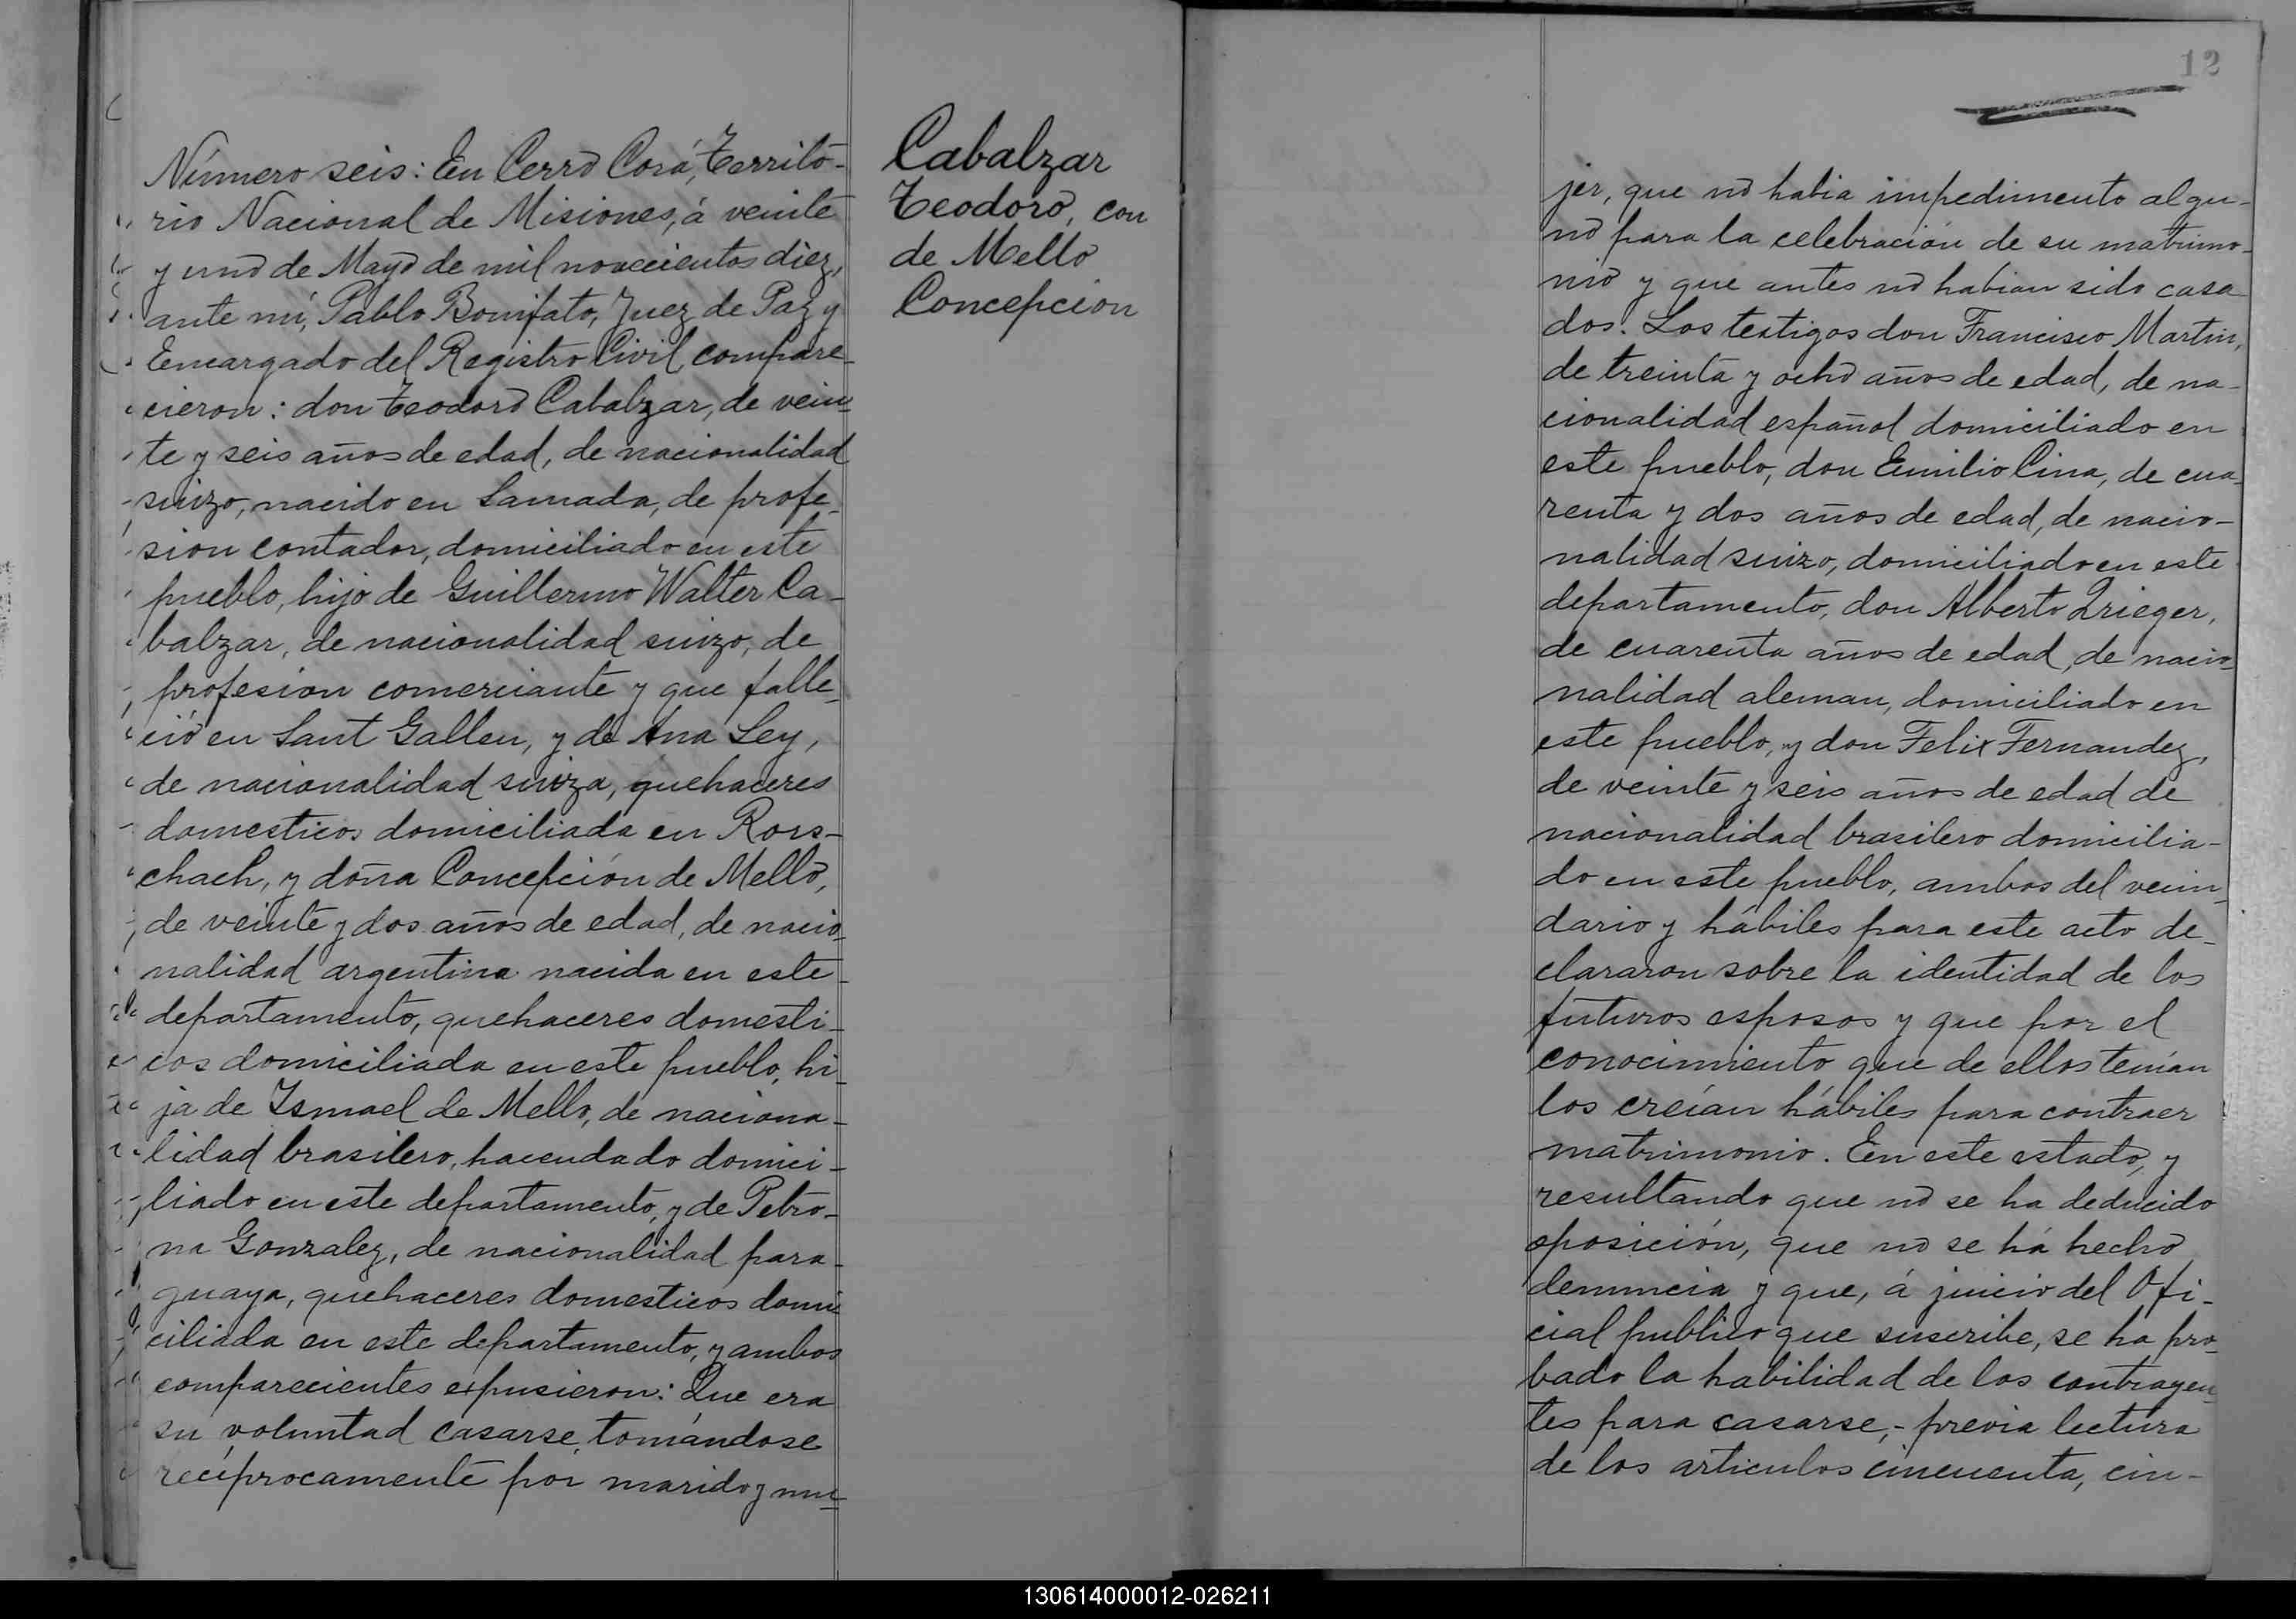 Número seis: En Cerro Corá, Territo-
rio Nacional de Misiones, á veinte
y uno de Mayo de mil novecientos diez,
ante mí, Pablo Bonifato, Juez de Paz y
Encargado del Registro Civil, compare-
cieron: don Teodoro Cabalzar, de vein-
te y seis años de edad, de nacionalidad
suizo, nacido en Samada, de profe-
sion contador, domiciliado en este
pueblo, hijo de Guillermo Walter Ca-
balzar, de nacionalidad suizo, de
profesion comerciante y que falle-
ció en Sant Gallen, y de Ana Ley,
de nacionalidad suiza, quehaceres
domesticos domiciliada en Rors-
chach, y doña Concepción de Mello,
de veinte y dos años de edad, de nacio-
nalidad argentina nacida en este
departamento, quehaceres domesti-
cos domiciliada en este pueblo, hi-
ja de Ismael de Mello, de naciona-
lidad brasilero, hacendado domici-
liado en este departamento, y de Petro-
na Gonzalez, de nacionalidad para-
guaya, quehaceres domesticos domi-
ciliada en este departamento, y ambos
comparecientes expusieron: Que era
su voluntad casarse, tomándose
recíprocamente por marido y mu-
Cabalzar
Teodoro, con
de Mello
Concepcion
12
jer, que no habia impedimento algu-
no para la celebración de su matrimo-
nio y que antes no habian sido casa-
dos. Los testigos don Francisco Martin,
de treinta y ocho años de edad, de na-
cionalidad español domiciliado en
este pueblo, don Emilio Cina, de cua-
renta y dos años de edad, de nacio-
nalidad suizo, domiciliado en este
departamento, don Alberto Krieger,
de cuarenta años de edad, de nacio-
nalidad aleman, domiciliado en
este pueblo, y don Felix Fernandez,
de veinte y seis años de edad de
nacionalidad brasilero domicilia-
do en este pueblo, ambos del vecin-
dario y hábiles para este acto de-
clararon sobre la identidad de los
futuros esposos y que por el
conocimiento que de ellos tenían
los creían hábiles para contraer
matrimonio. En este estado, y
resultando que no se ha deducido
oposición, que no se há hecho
denuncia y que, á juicio del Ofi-
cial publico que suscribe, se ha pro-
bado la habilidad de los contrayen-
tes para casarse,- previa lectura
de los articulos cincuenta, cin-
130614000012-026211